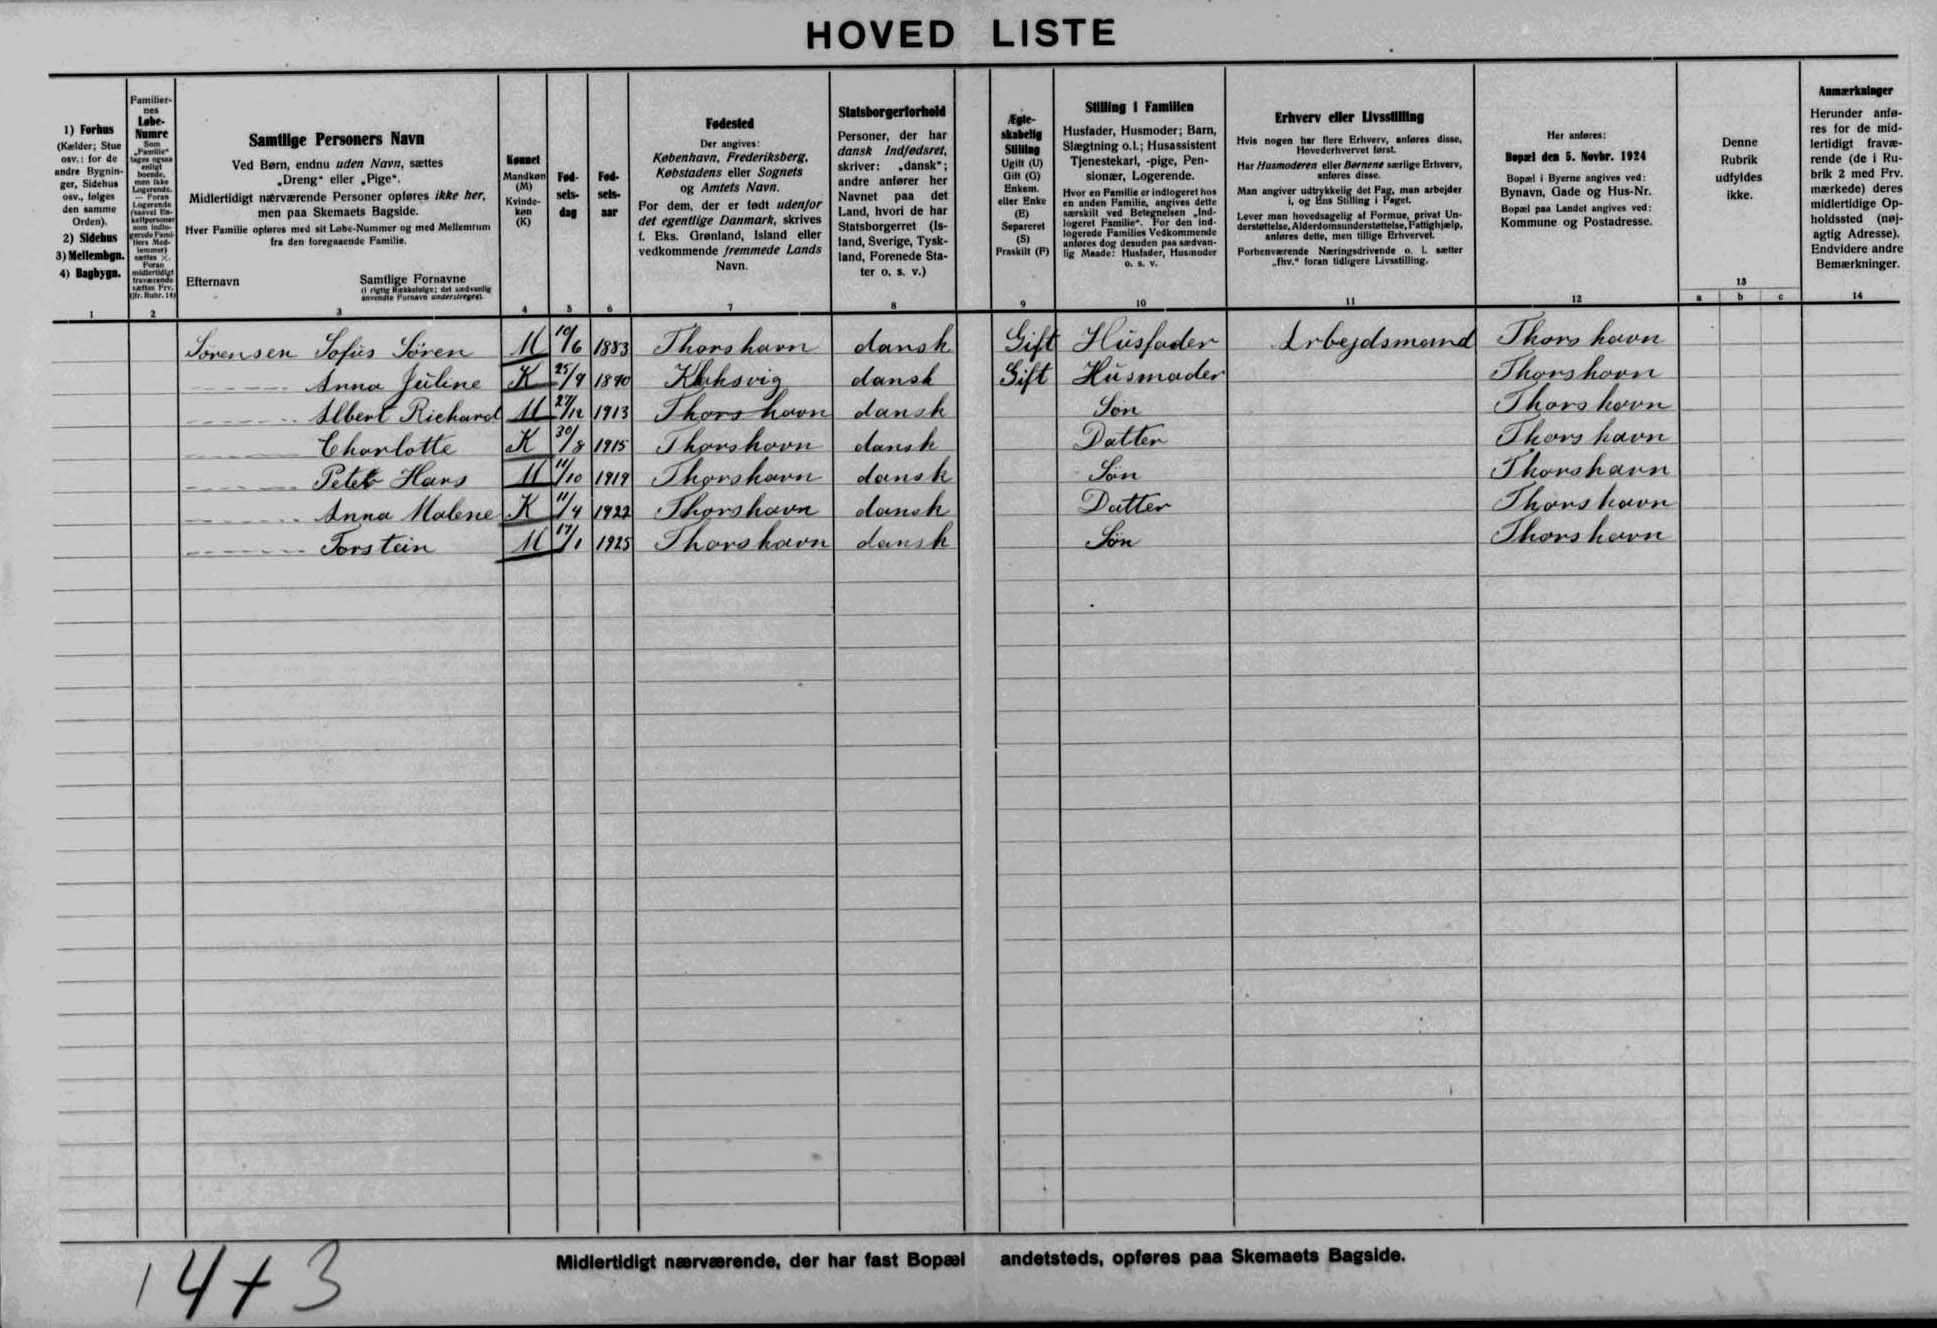 HOVED LISTE
1) Forhus
(Kælder; Stue
osv.: for de
andre Bygnin-
ger, Sidehus
osv., følges
den samme
Orden).
2) Sidehus
3) Mellembgn.
4) Bagbygn.
1
Familier-
nes
Løbe-
Numre
Som
„Familie“
tages ogsaa
enligt
boende,
men ikke
Logerende.
— Foran
Logerende
(saavel En-
keltpersoner
som indlo-
gerede Fami-
liers Med-
lemmer)
sættes ×.
Foran
midlertidigt
fraværende
sættes Frv.
(jfr. Rubr. 14)
2
Samtlige Personers Navn
Ved Børn, endnu uden Navn, sættes
„Dreng“ eller „Pige“.
Midlertidigt nærværende Personer opføres ikke her,
men paa Skemaets Bagside.
Hver Familie opføres med sit Løbe-Nummer og med Mellemrum
fra den foregaaende Familie.
Efternavn
Samtlige Fornavne
(i rigtig Rækkefølge; det sædvanlig
anvendte Fornavn understreges).
3
Kønnet
Mandkøn
(M)
Kvinde-
køn
(K)
4
Fød-
sels-
dag
5
Fød-
sels-
aar
6
Fødested
Der angives:
København, Frederiksberg,
Købstadens eller Sognets
og Amtets Navn.
For dem, der er født udenfor
det egentlige Danmark, skrives
f. Eks. Grønland, Island eller
vedkommende fremmede Lands
Navn.
7
Statsborgerforhold
Personer, der har
dansk Indfødsret,
skriver: „dansk“;
andre anfører her
Navnet paa det
Land, hvori de har
Statsborgerret (Is-
land, Sverige, Tysk-
land, Forenede Sta-
ter o. s. v.)
8
Ægte-
skabelig
Stilling
Ugift (U)
Gift (G)
Enkem.
eller Enke
(E)
Separeret
(S)
Fraskilt (F)
9
Stilling i Familien
Husfader, Husmoder; Barn,
Slægtning o.l.; Husassistent
Tjenestekarl, -pige, Pen-
sionær, Logerende.
Hvor en Familie er indlogeret hos
en anden Familie, angives dette
særskilt ved Betegnelsen „Ind-
logeret Familie“. For den ind-
logerede Families Vedkommende
anføres dog desuden paa sædvan-
lig Maade: Husfader, Husmoder
o. s. v.
10
Erhverv eller Livsstilling
Hvis nogen har flere Erhverv, anføres disse,
Hovederhvervet først.
Har Husmoderen eller Børnene særlige Erhverv,
anføres disse.
Man angiver udtrykkelig det Fag, man arbejder
i, og Ens Stilling i Faget.
Lever man hovedsagelig af Formue, privat Un-
derstøttelse, Alderdomsunderstøttelse, Fattighjælp,
anføres dette, men tillige Erhvervet.
Forhenværende Næringsdrivende o. l. sætter
„fhv.“ foran tidligere Livsstilling.
11
Her anføres:
Bopæl den 5. Novbr. 1924
Bopæl i Byerne angives ved:
Bynavn, Gade og Hus-Nr.
Bopæl paa Landet angives ved:
Kommune og Postadresse.
12
Denne
Rubrik
udfyldes
ikke.
13
a b c
Anmærkninger
Herunder anfø-
res for de mid-
lertidigt fravæ-
rende (de i Ru-
brik 2 med Frv.
mærkede) deres
midlertidige Op-
holdssted (nøj-
agtig Adresse).
Endvidere andre
Bemærkninger.
14
Sørensen Sofus Søren M 10/6 1883 Thorshavn dansk Gift Husfader Arbejdsmand Thorshavn
Anna Juline K 25/9 1890 Klaksvig dansk Gift Husmoder Thorshavn
Albert Richard M 27/12 1913 Thorshavn dansk Søn Thorshavn
Charlotte K 30/8 1915 Thorshavn dansk Datter Thorshavn
Peter Hans M 11/10 1919 Thorshavn dansk Søn Thorshavn
Anna Malene K 11/4 1922 Thorshavn dansk Datter Thorshavn
Torstein M 17/1 1925 Thorshavn dansk Søn Thorshavn
Midlertidigt nærværende, der har fast Bopæl andetsteds, opføres paa Skemaets Bagside.
14+3